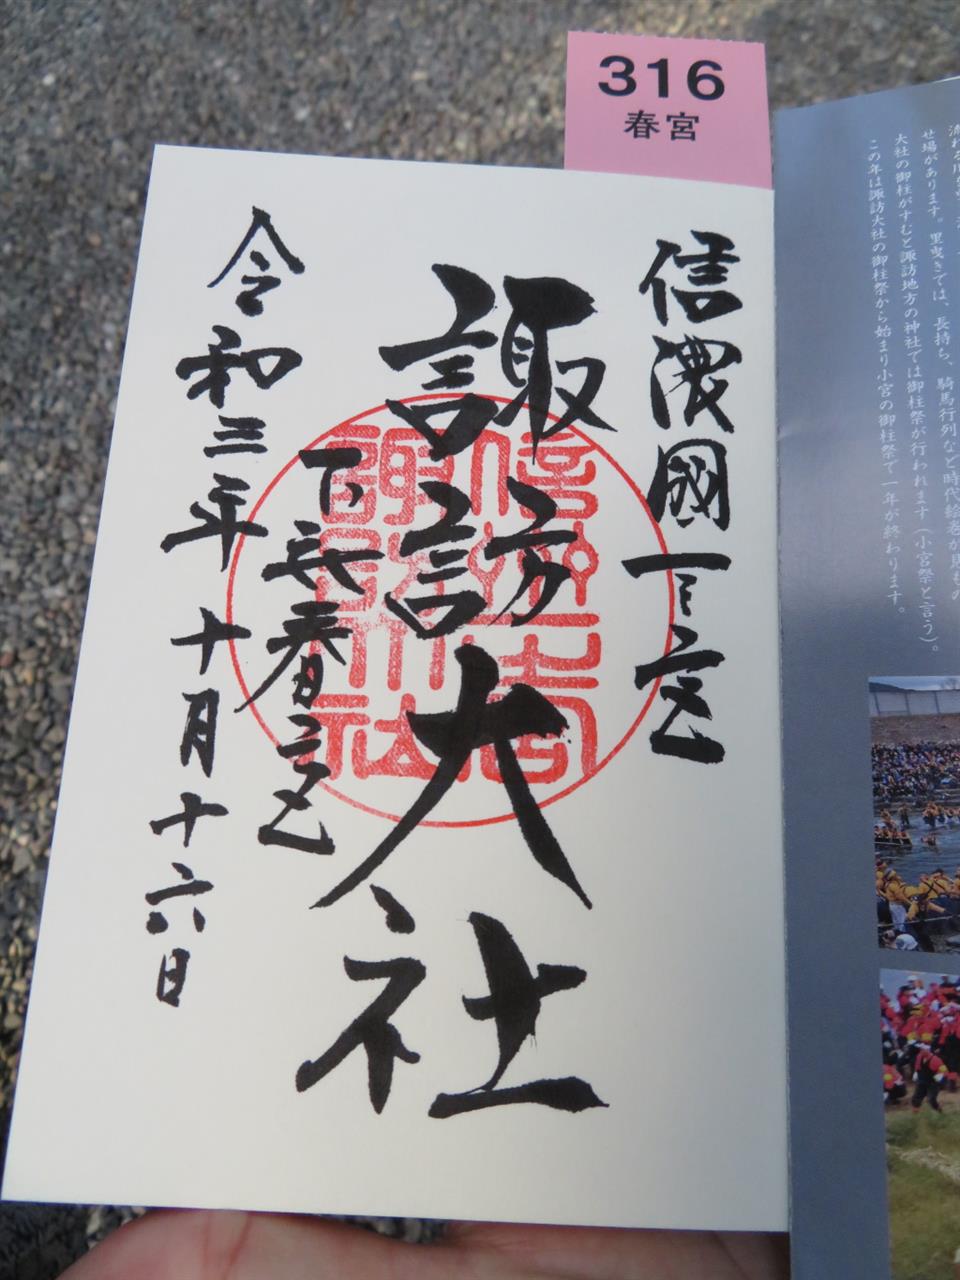 316
春宮
信濃國一之宮
諏訪大社
下社春宮
令和三年十月十六日
信州一之宮諏訪大社
せ場があります。里曳きでは、長持ち、騎馬行列など時代絵巻が
大社の御柱がすむと諏訪地方の神社では御柱祭が行われます（小宮祭と言う）。
この年は諏訪大社の御柱祭から始まり小宮の御柱祭で一年が終わります。